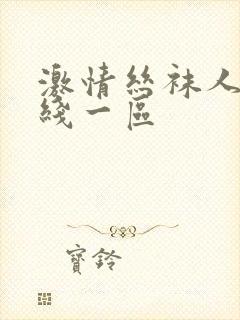 激情丝袜人
线一区
寶鈴